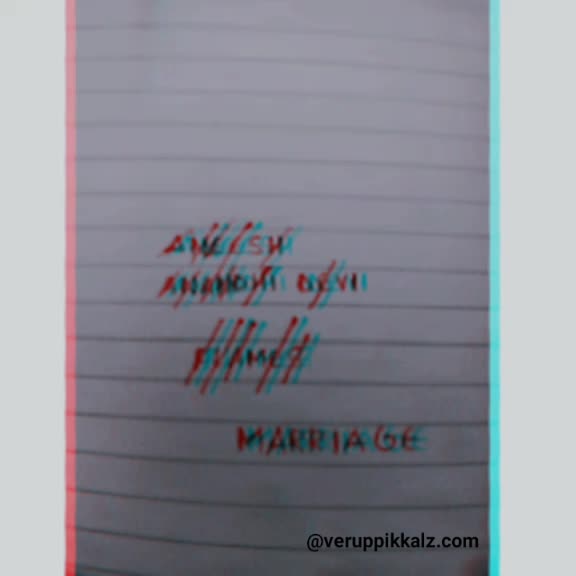 ANEESH
ANANDHI DEVI
FLAMES
MARRIAGE
@veruppikkalz.com